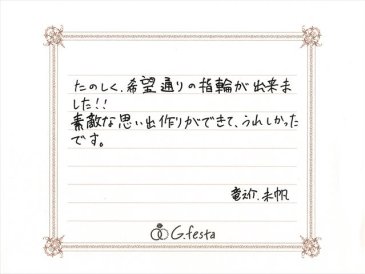 たのしく、希望通りの指輪が出来ま
した!!
素敵な思い出作りができて、うれしかった
です。
未帆
G.festa